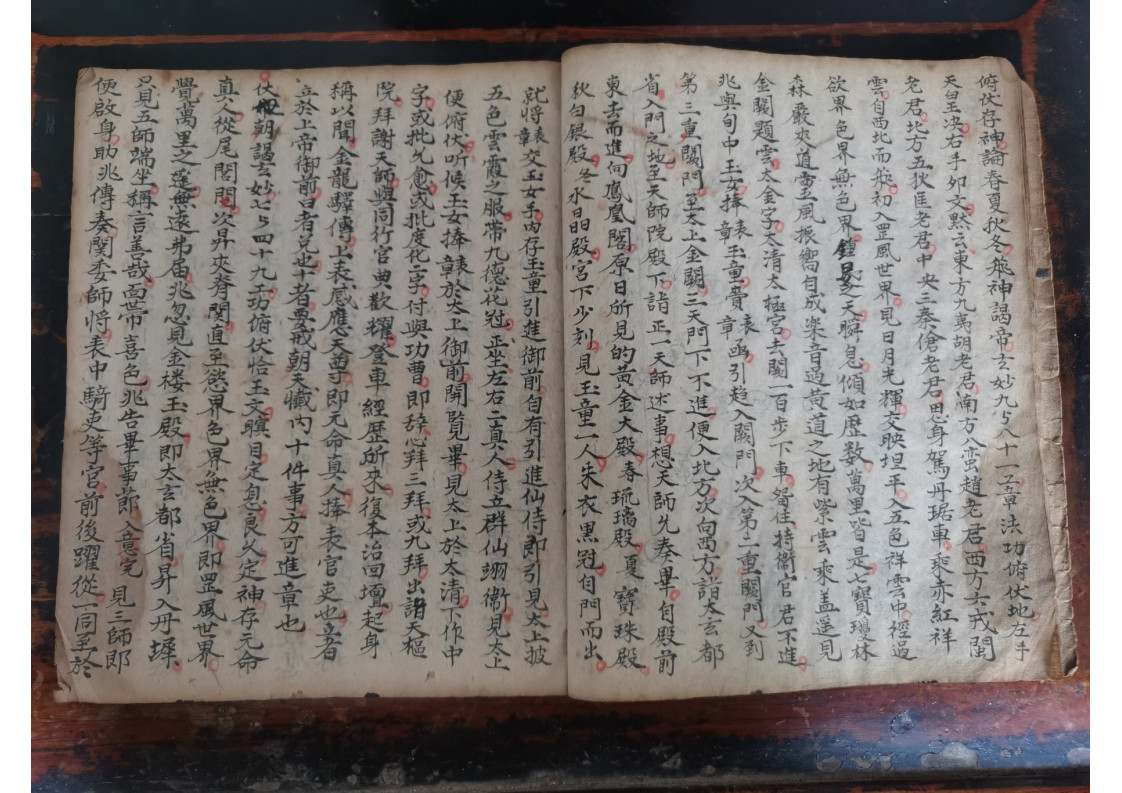 俯伏存神論春夏秋冬飛神謁帝玄妙九五八十一章法功俯伏地左手
天皇玉决右手卯文黙云東方九夷胡老君湳方八蛮趙老君西方六戎閩
老君北方五狄匡老君中央三秦傖老君思身駕丹琚車乘赤紅祥
雲自西北而飛初入罡風世界見日月光輝交映坦平入五色祥雲中徑過
欲界色界無色界之天瞬息傾如歴数萬里皆是七寶瓊林
森嚴妙道霊風振嚮自成楽音過黄道之地有紫雲乘盖遥見
金闕題雲太金字太清太極宮去闕一百步下車暫住持衛官君不進
兆與旬中玉女捧表章玉童賫表章凾引趋入闕門次入第二重闕門又到
第三重闕門至太上金闕三天門下不進便入北方次向西方詣太玄都
省入門之地至天師院殿下詣正一天師述事想天師先奏畢自殿前
東去而進向鳳凰閣原日所見的黄金大殿春琉璃殿夏寶珠殿
秋白銀殿冬水晶殿宮下少刻見玉童一人朱衣黒冠自門而出
就将表章交玉女手内存玉童引進御前自有引進仙侍即引見太上披
五色雲霞之服带九德花冠正坐左右二真人侍立群仙翊衛見太上
便俯伏听候玉女捧表章於太上御前開覧畢見太上於太清下作中
字或批允愈或批度化二字付與功曹即辞心拜三拜或九拜出謝天樞
院拜謝天師與同行官典歡耀登車經歴所來復本治回壇起身
稱以聞金龍驛傳上表感應天尊即元命真人捧表官吏也章者
立於上帝御前口者兌也十者要戒朝天懺内十件事方可進章也
伏朝謁玄妙七五四十九功俯伏恰玉文瞑目定息良久定神存元命
真人從尾閭門次昇夾脊関直至慾界色界無色界即罡風世界
覺萬里之遥無遠弗届兆忽見金楼玉殿即太玄都省昇入丹墀
只見五師端坐稱言善哉面帯喜色兆告畢事節入意完見三師即
便啟身助兆傳奏関委師将表中騎吏等官前後躍從一同至於